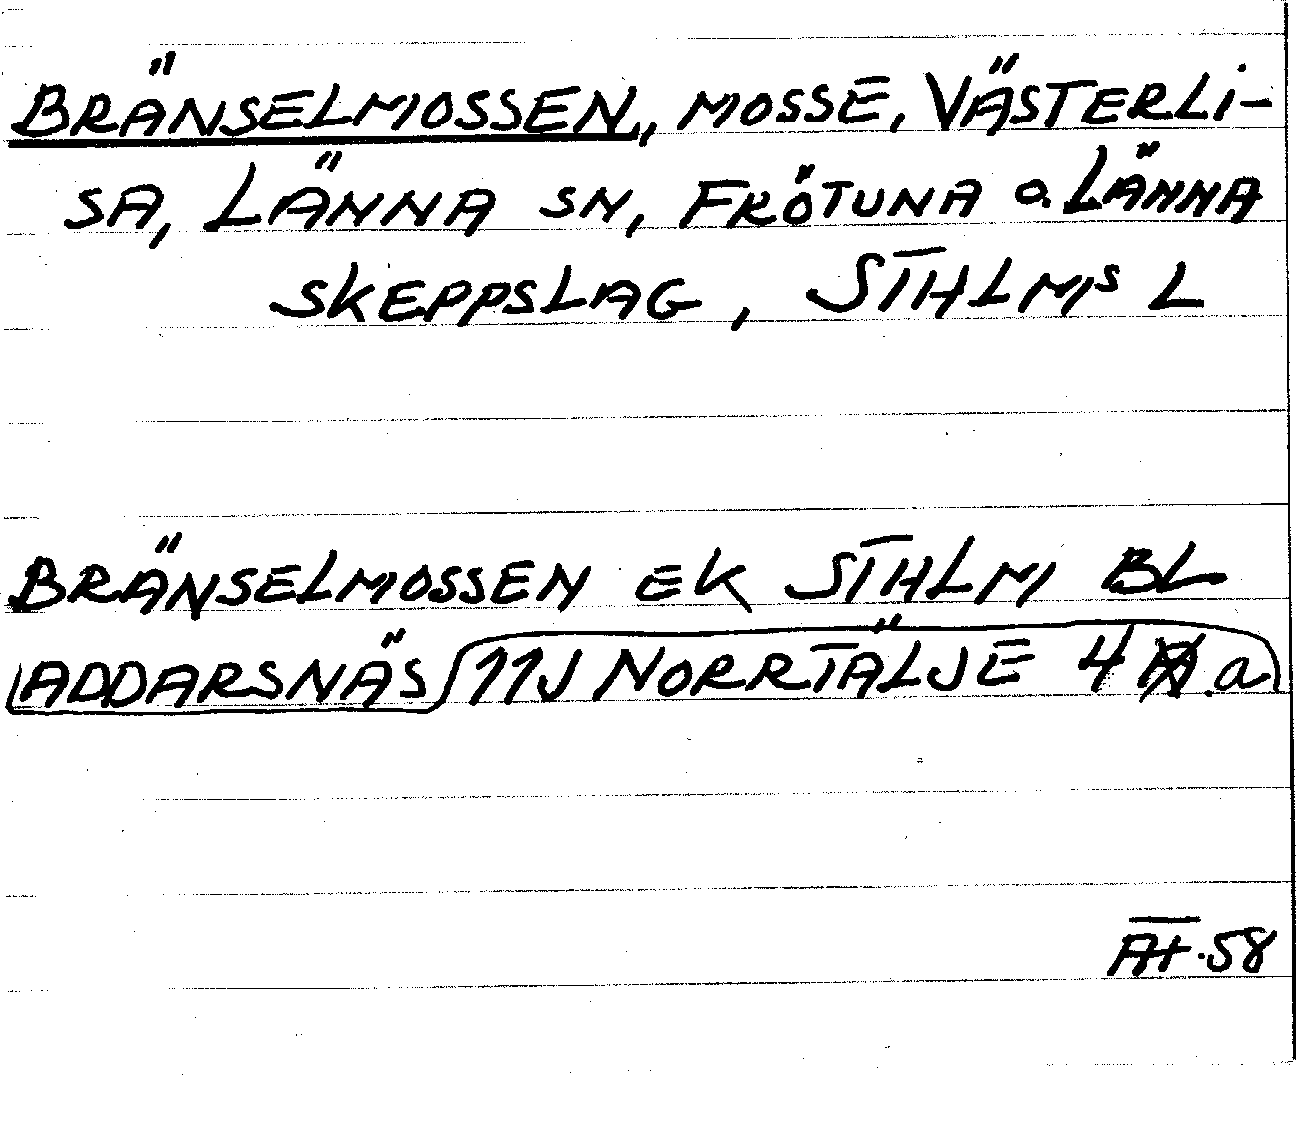 BRÄNSELMOSSEN, MOSSE, VÄSTERLI-
SA, LÄNNA SN, FRÖTUNA O. LÄNNA
SKEPPSLAG, STHLMS L
BRÄNSELMOSSEN EK STHLM BL
ADDARSNÄS 11J NORRTÄLJE 4 .a
58